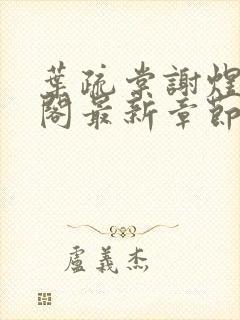 葉疏棠謝煜
閣最新章節
盧義杰